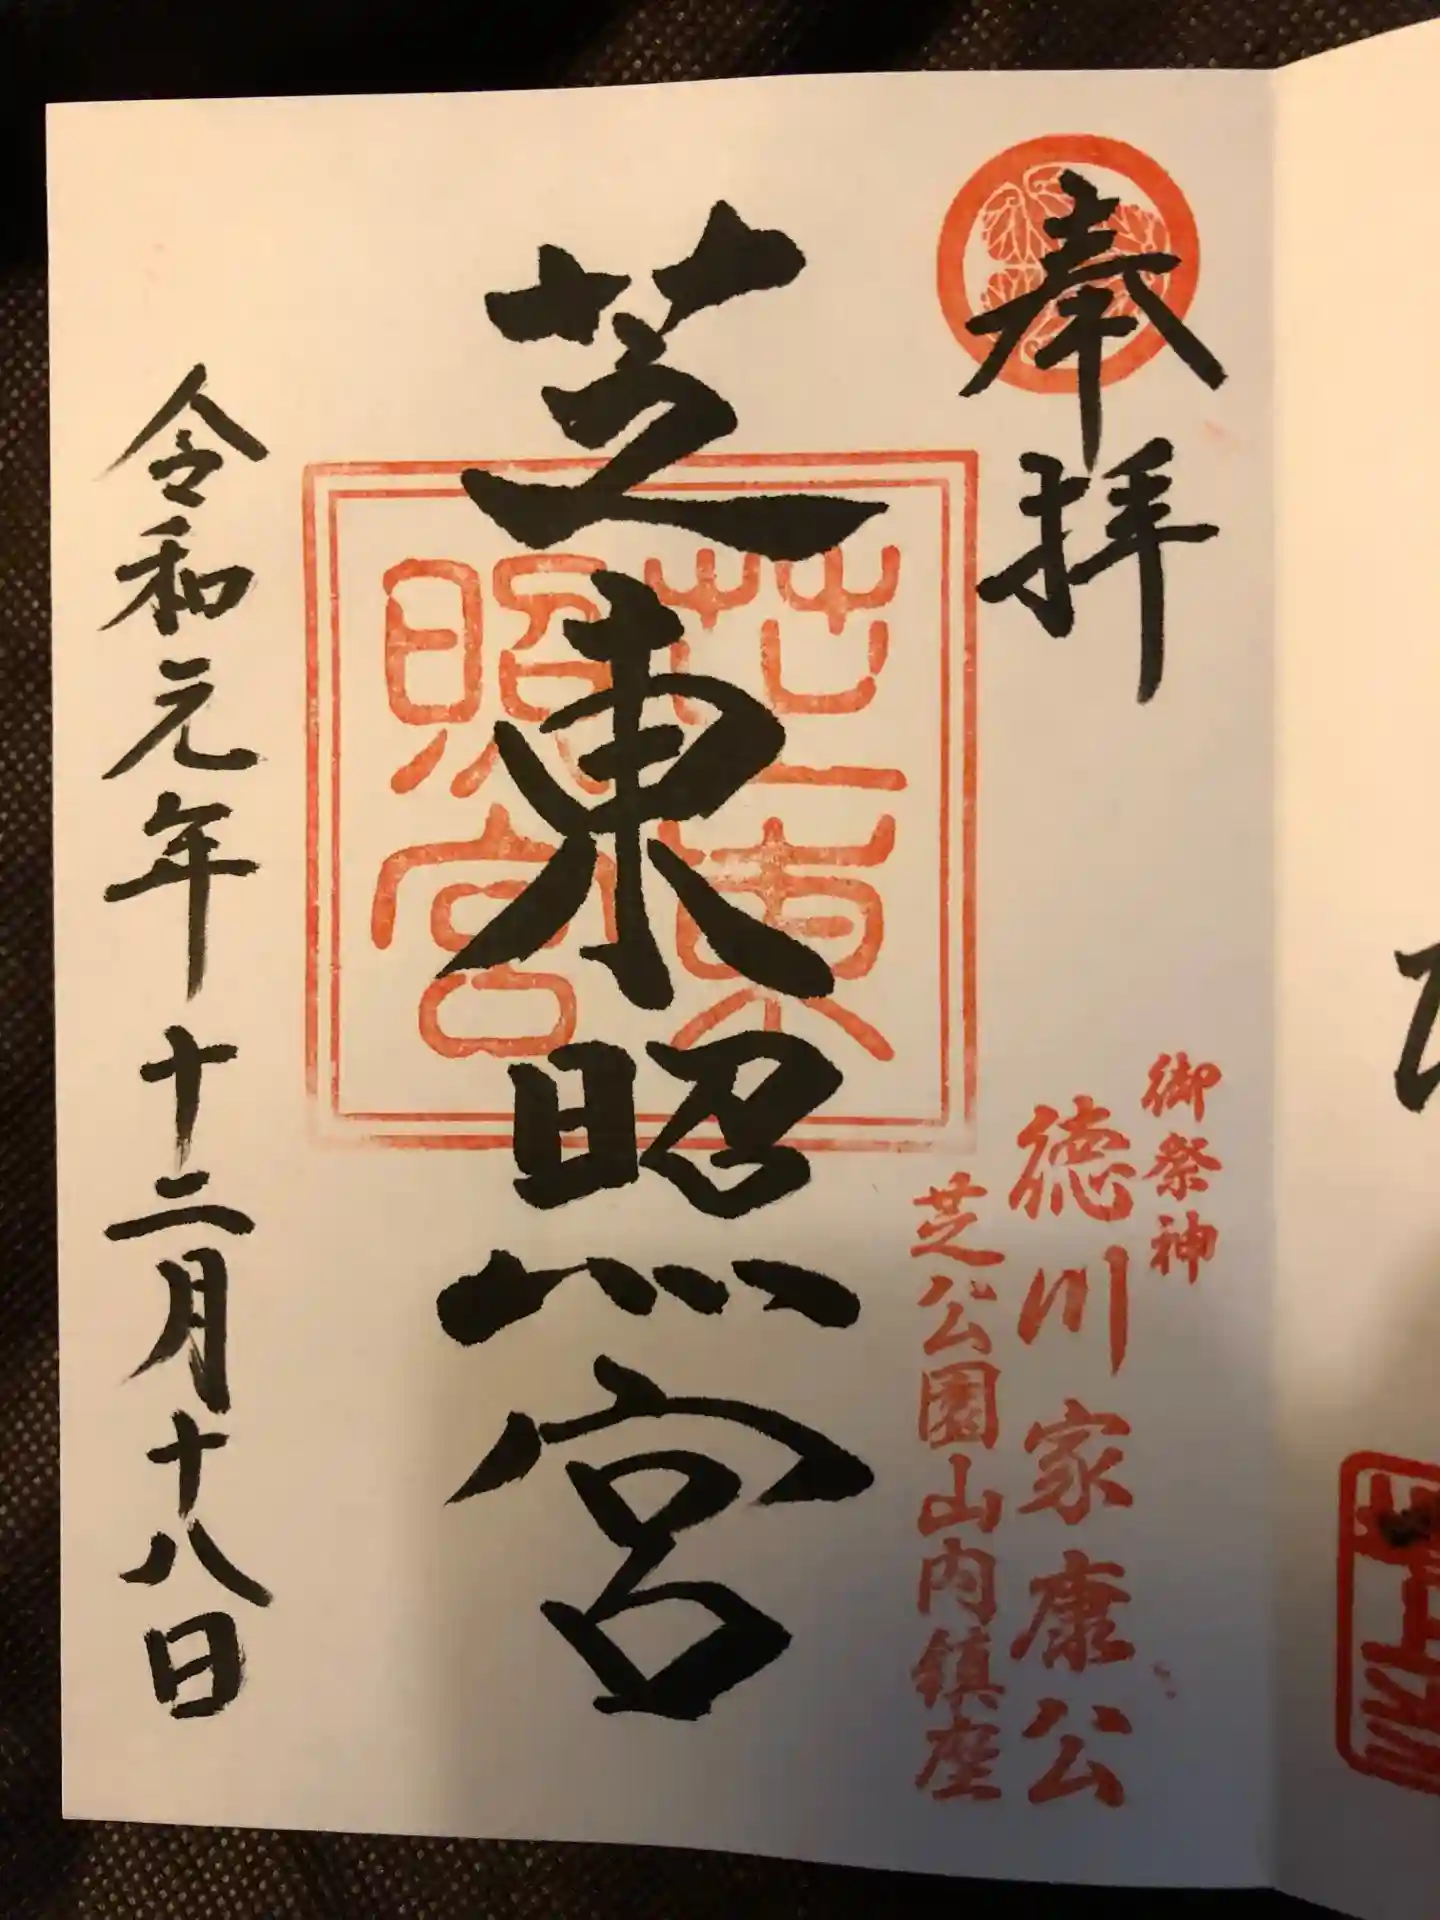 奉拝
御祭神
徳川家康公
芝公園山内鎮座
芝東照宮
芝東
照宮
令和元年十二月十八日